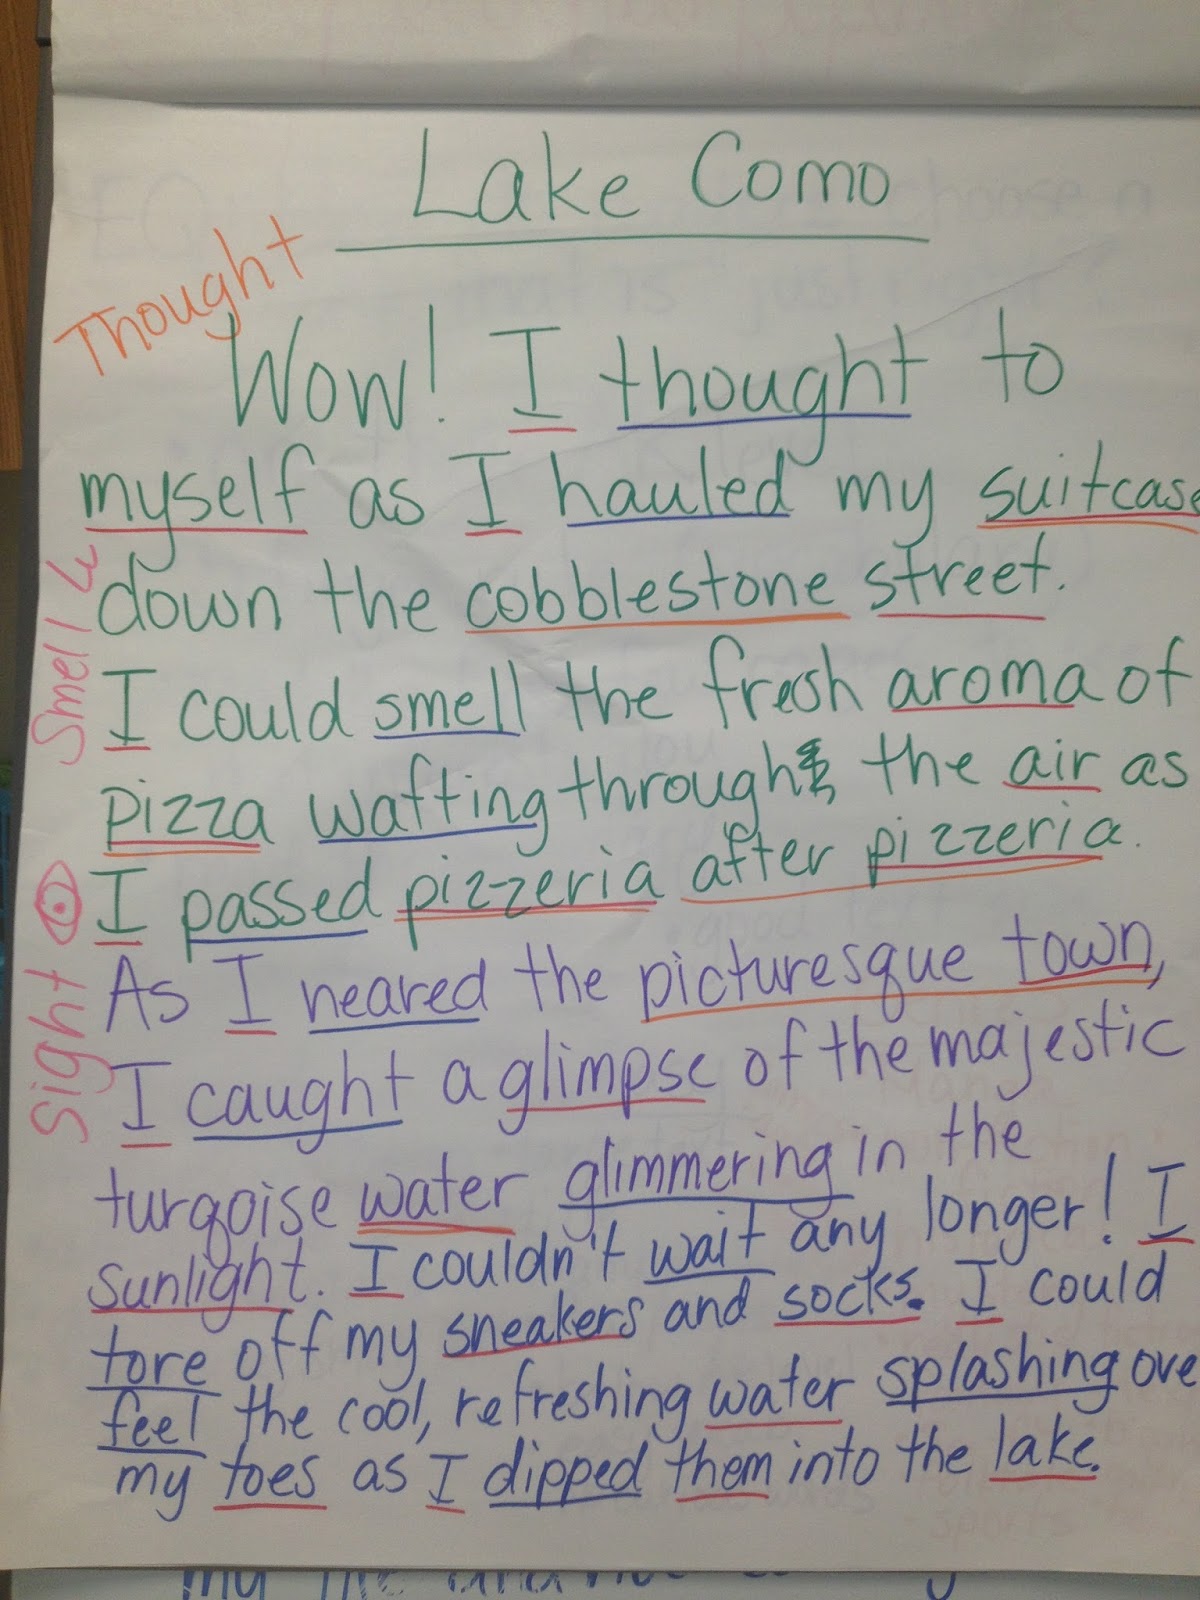 Lake Como
Thought
Wow! I thought to
myself as I hauled my suitcase
down the cobblestone street.
Smell
I could smell the fresh aroma of
pizza wafting through the air as
I passed pizzeria after pizzeria.
Sight
As I neared the picturesque town,
I caught a glimpse of the majestic
turqoise water glimmering in the
sunlight. I couldn't wait any longer! I
tore off my sneakers and socks. I could
feel the cool, refreshing water splashing ove
my toes as I dipped them into the lake.